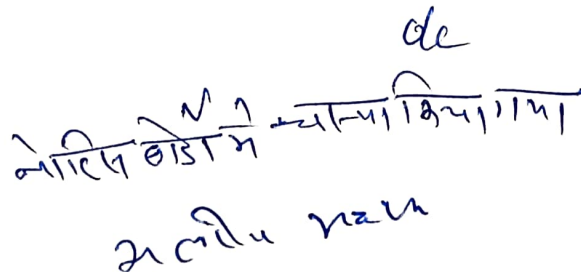 de
नोटिस बोर्ड में चस्पा किया गया